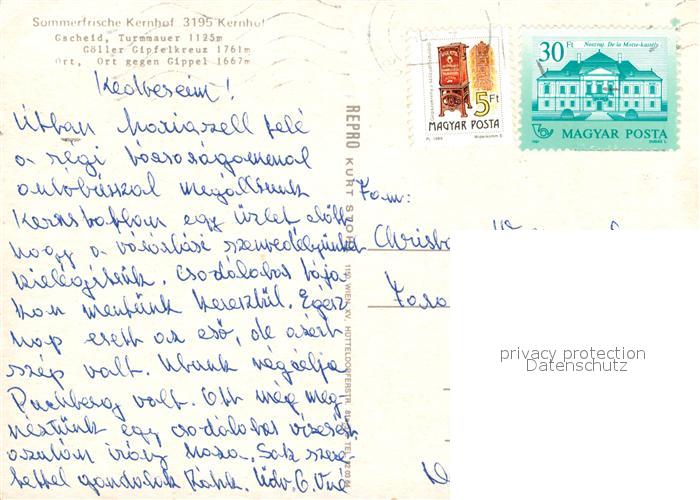 Sommerfrische Kernhof 3195 Kernhof
Gscheid, Turmmauer 1125m
Göller Gipfelkreuz 1761m
Ort, Ort gegen Gippel 1667m
Kedveseim!
Útban Mariazell felé
a régi társaságommal
autóbusszal megálltunk
egy üzlet előtt
hogy a vásárlási szenvedélyünket
kielégítsük. Csodálatos tája-
kon mentünk keresztül. Egész
nap esett az eső, de azért
szép volt. Utunk végcélja
Puchberg volt. Ott még meg-
néztünk egy csodálatos vízesést
azután irány haza. Sok szere-
tettel gondolok Rátok. Üdv. G.
REPRO KURT
1150 WIEN XV, HÜTTELDORFERSTR.
5Ft
MAGYAR POSTA
30 Ft
Noszvaj. De la Motte-kastély
MAGYAR POSTA
Fam:
privacy protection
Datenschutz